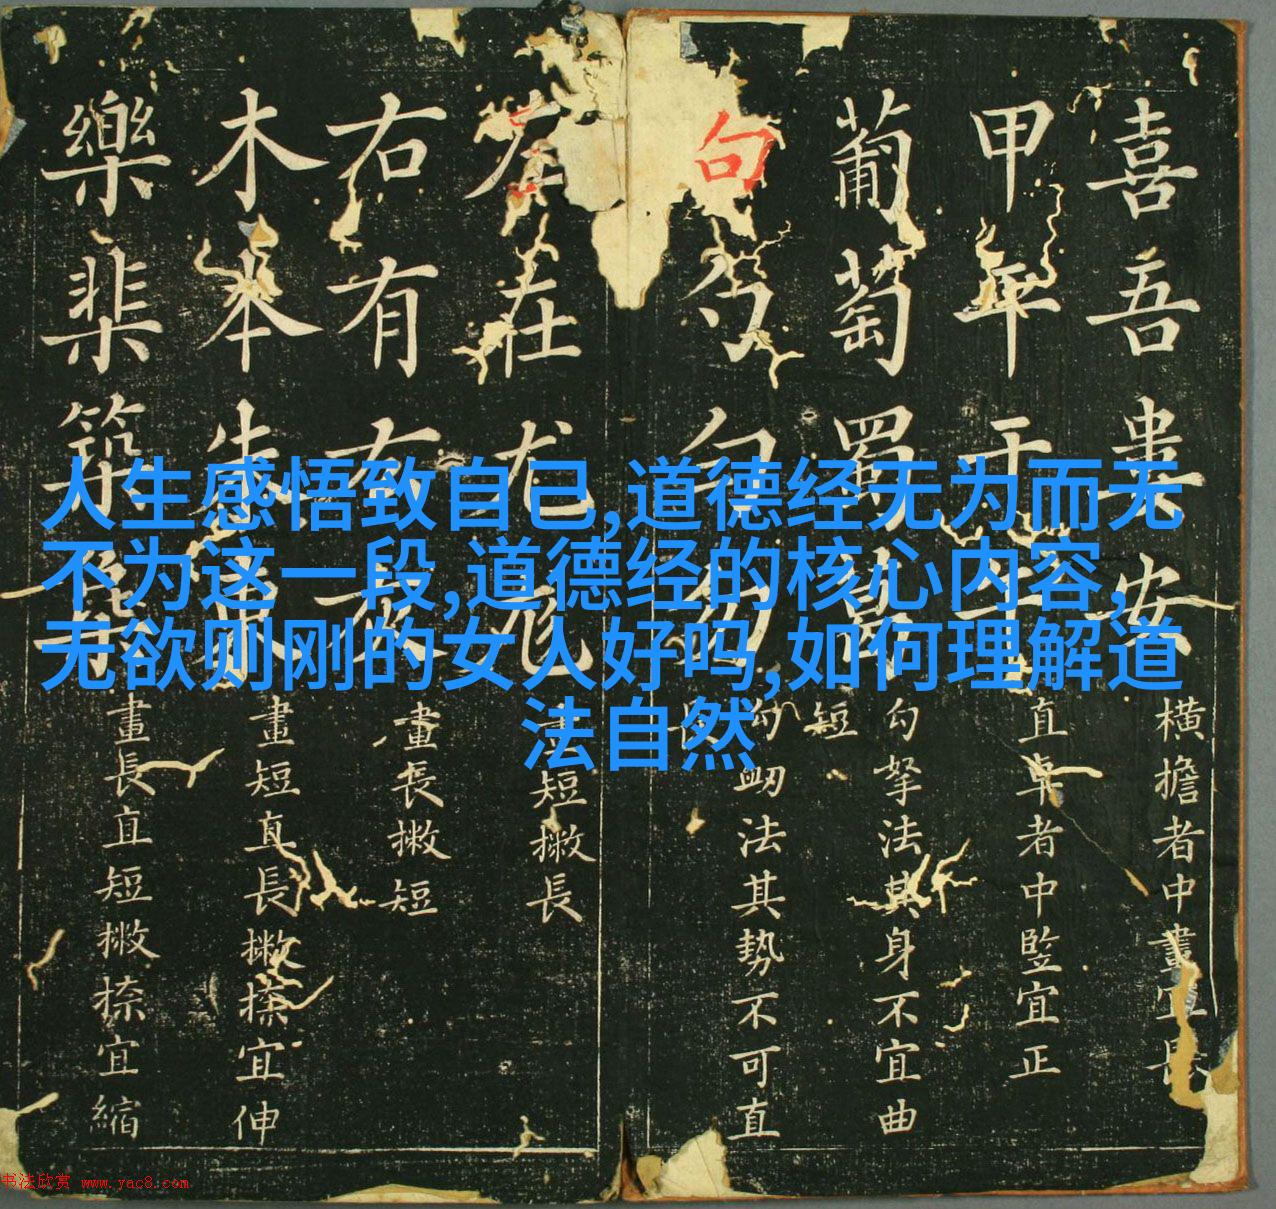 人生感悟致自己,道德经无为而无
不为这一段,道德经的核心内容,
无欲则刚的女人好吗,如何理解道
法自然
喜吾安
横擔者中畫宜
甲平干
直卓者中竪宜正
葡萄蜀
勾拏法其身不宜曲
句勺勿
勾法其勢不可直
在尤尨
短撇長
右有右
畫長撇短
木本朱
畫短直長撇捺宜伸
樂棐築
畫長直短撇捺宜縮
书法欣赏 www.yac8.com